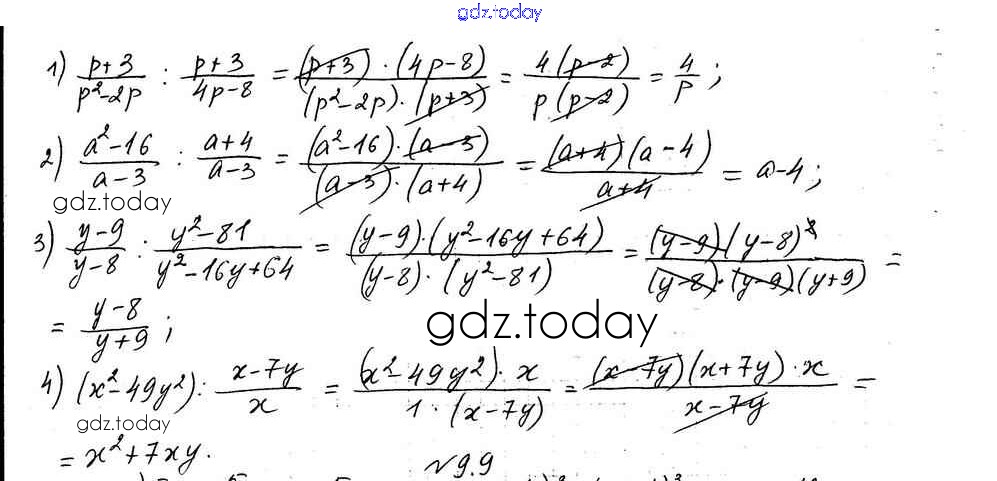 gdz.today
1) (p+3)/(p²-2p) : (p+3)/(4p-8) = ((p+3)·(4p-8))/((p²-2p)·(p+3)) = (4(p-2))/(p(p-2)) = 4/p ;
2) (a²-16)/(a-3) : (a+4)/(a-3) = ((a²-16)·(a-3))/((a-3)·(a+4)) = ((a+4)(a-4))/(a+4) = a-4 ;
gdz.today
3) (y-9)/(y-8) : (y²-81)/(y²-16y+64) = ((y-9)·(y²-16y+64))/((y-8)·(y²-81)) = ((y-9)(y-8)²)/((y-8)·(y-9)(y+9)) =
= (y-8)/(y+9) ;
gdz.today
4) (x²-49y²) : (x-7y)/x = ((x²-49y²)·x)/(1·(x-7y)) = ((x-7y)(x+7y)·x)/(x-7y) =
gdz.today
= x²+7xy.
№9.9